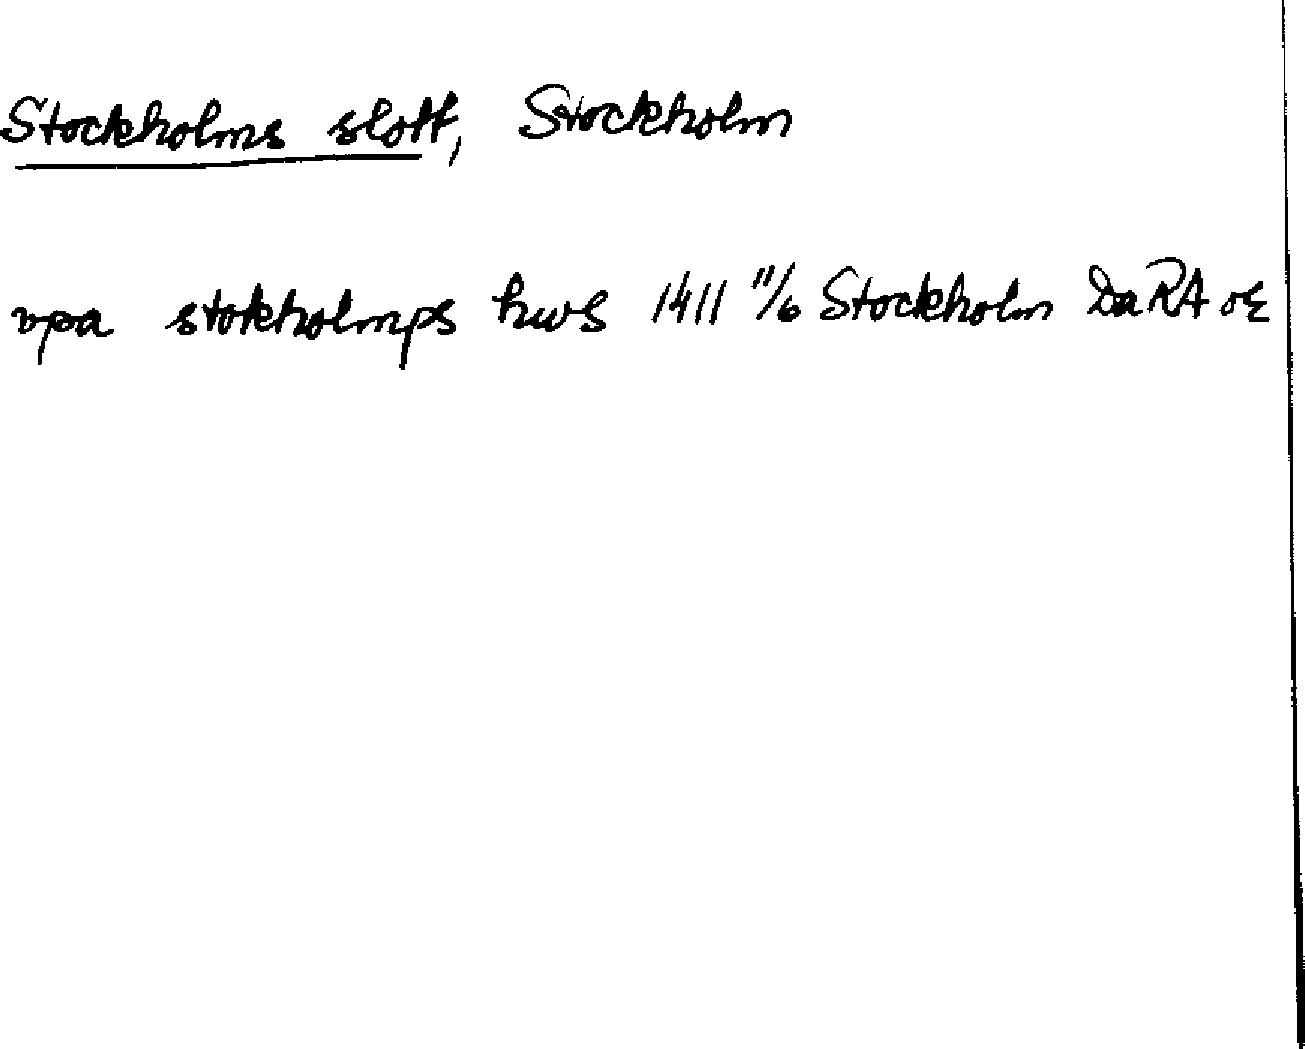 Stockholms slott, Stockholm
vpa stokholmps hws 1411 11/6 Stockholm DaRA or